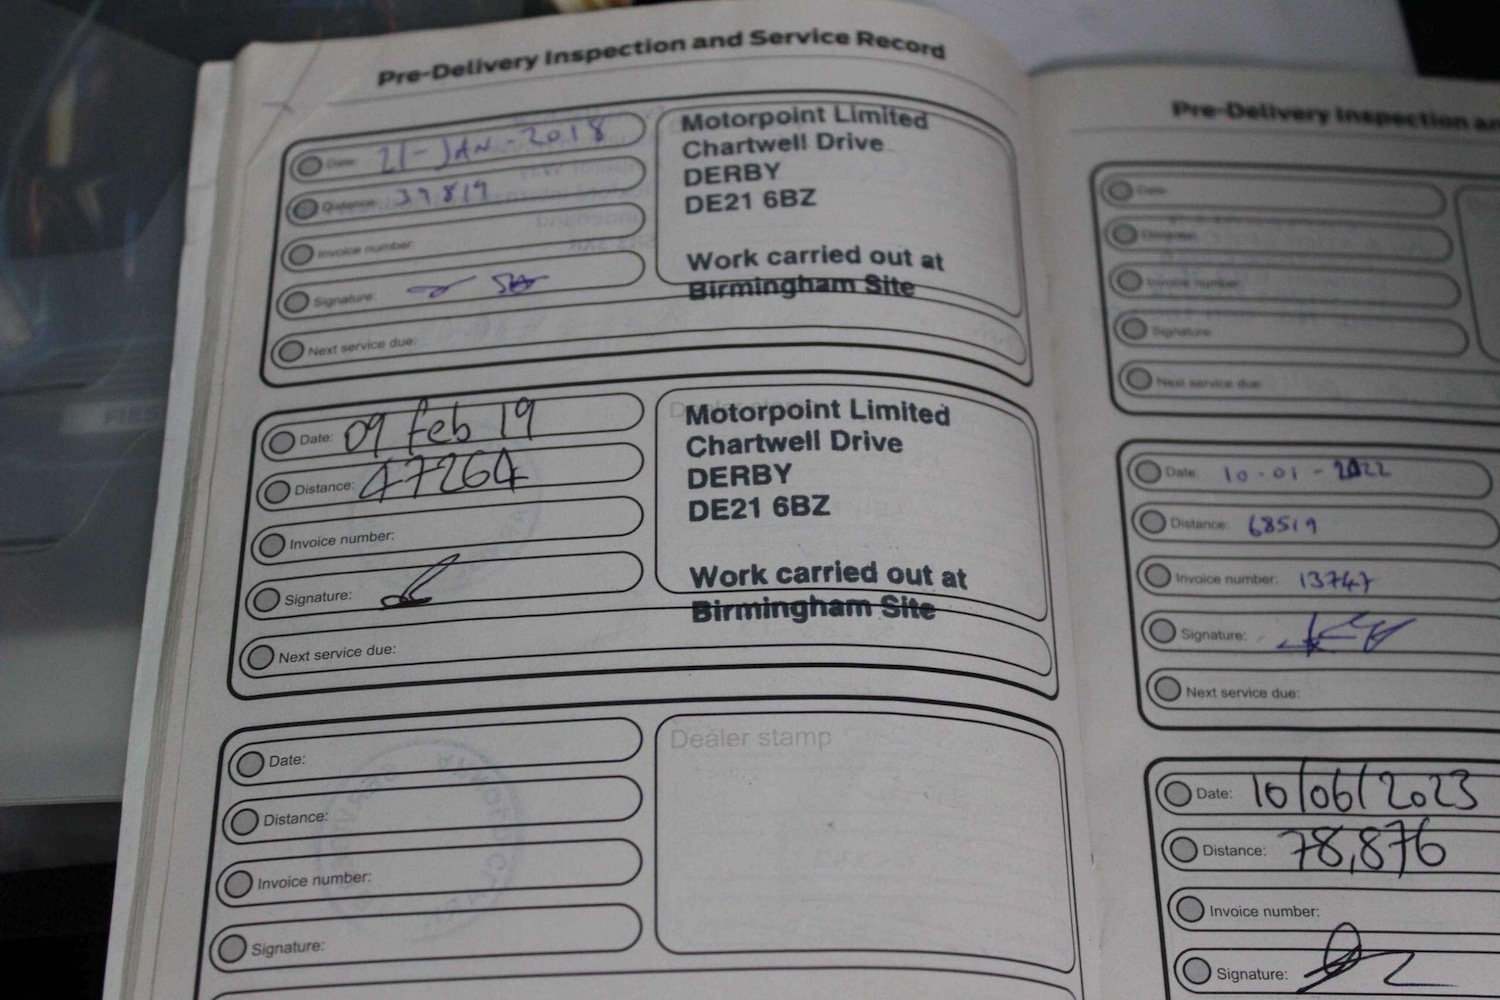 Pre-Delivery Inspection and Service Record
Date: 21-JAN-2018
Distance: 39819
Invoice number:
Signature:
Next service due:
Motorpoint Limited
Chartwell Drive
DERBY
DE21 6BZ
Work carried out at
Birmingham Site
Date: 09 feb 19
Distance: 47264
Invoice number:
Signature:
Next service due:
Dealer stamp
Motorpoint Limited
Chartwell Drive
DERBY
DE21 6BZ
Work carried out at
Birmingham Site
Date:
Distance:
Invoice number:
Signature:
Dealer stamp
Pre-Delivery Inspection an
Date:
Distance:
Invoice number:
Signature:
Next service due:
Date: 10-01-2022
Distance: 68519
Invoice number: 13747
Signature:
Next service due:
Date: 10/06/2023
Distance: 78,876
Invoice number:
Signature: